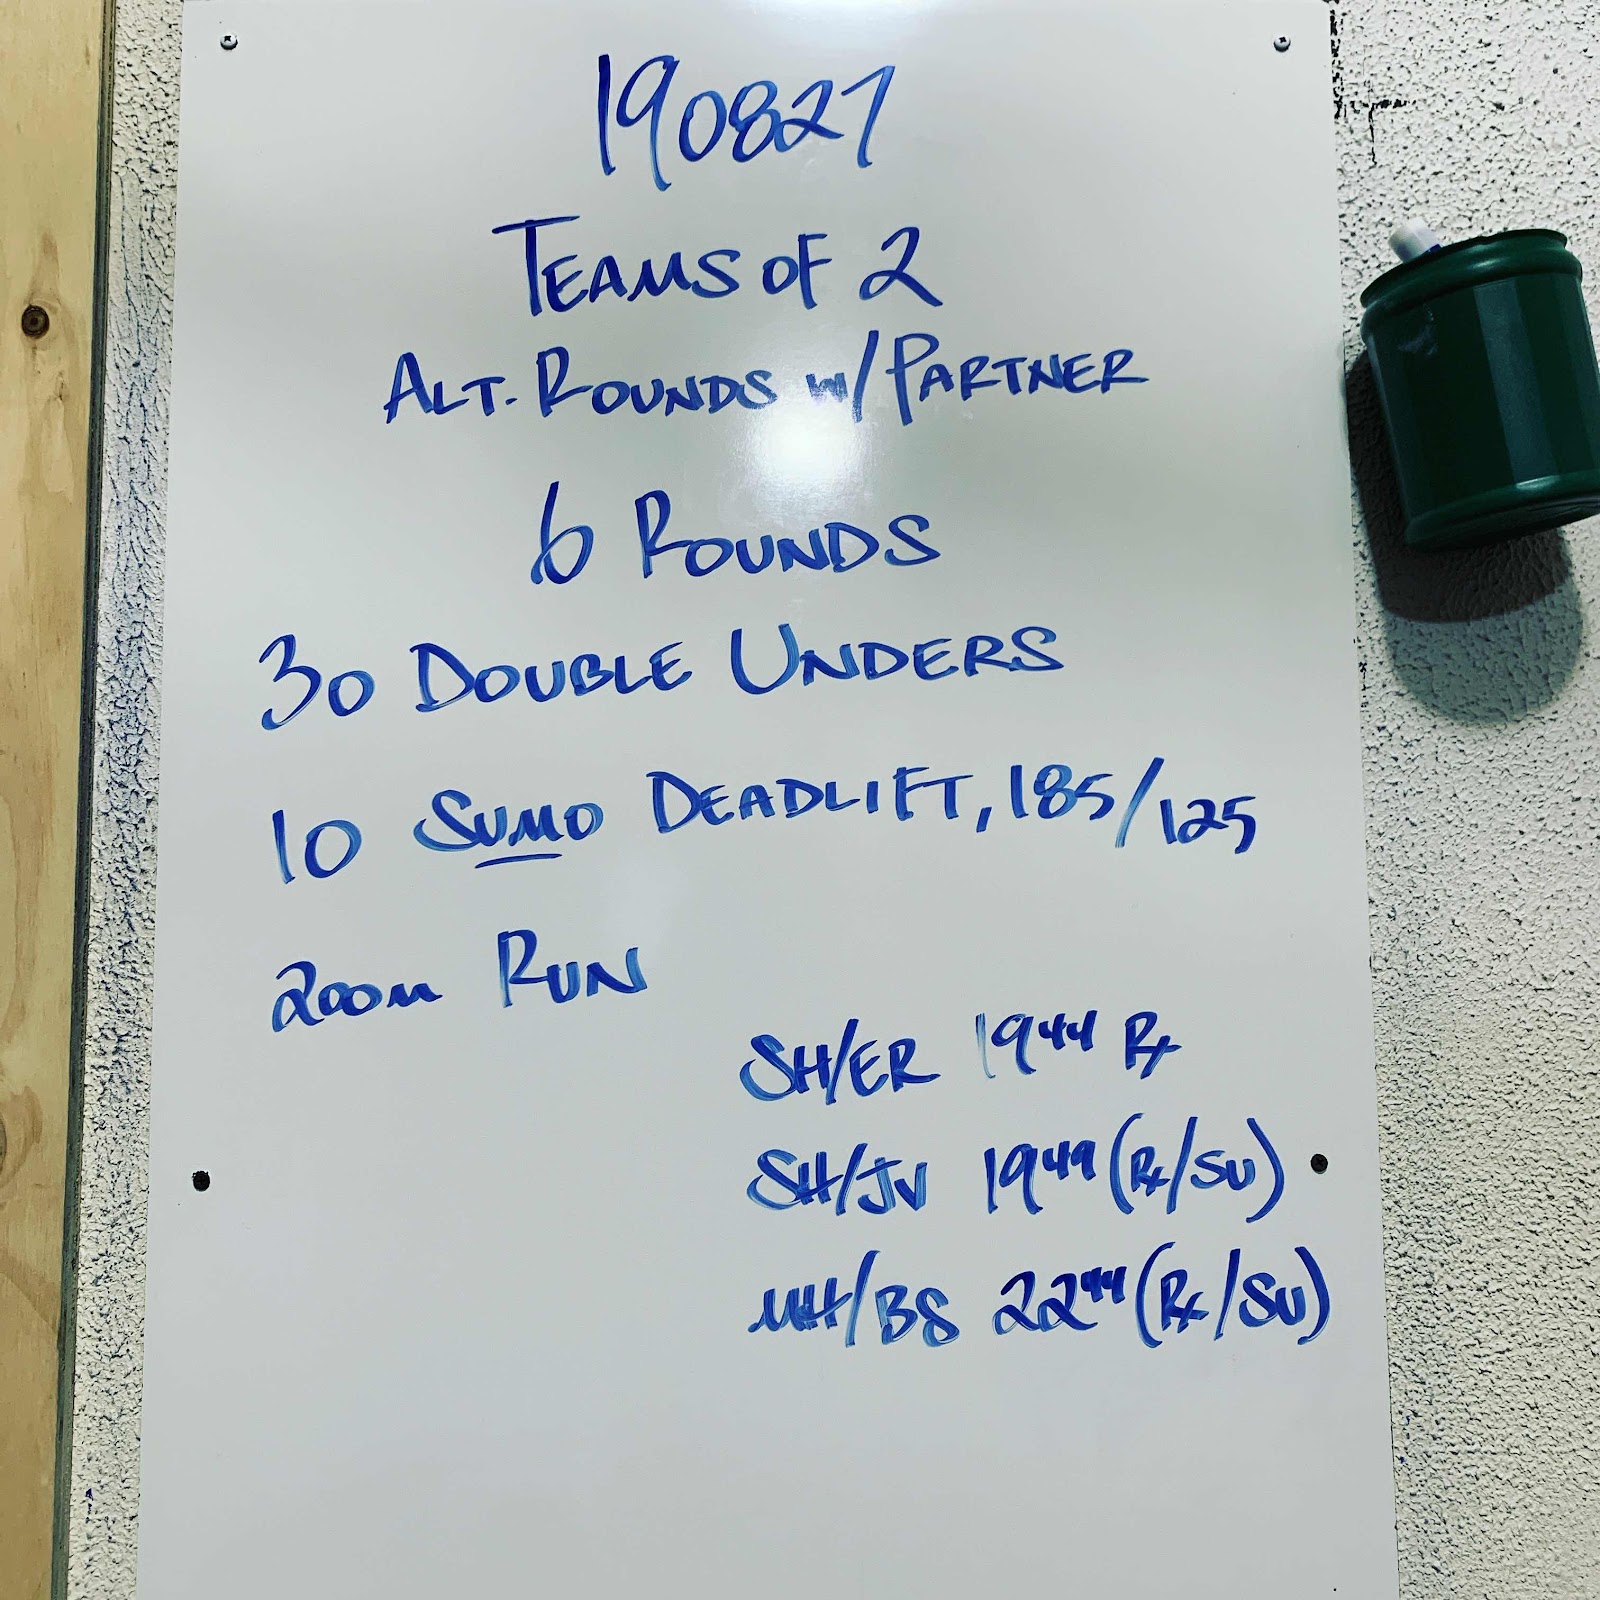 190827
TEAMS OF 2
ALT. ROUNDS W/PARTNER
6 ROUNDS
30 DOUBLE UNDERS
10 SUMO DEADLIFT, 185/125
200M RUN
SH/ER 19⁴⁴ Rx
SH/JV 19⁴⁹ (Rx/SU)
MH/BS 22⁴⁴ (Rx/SU)